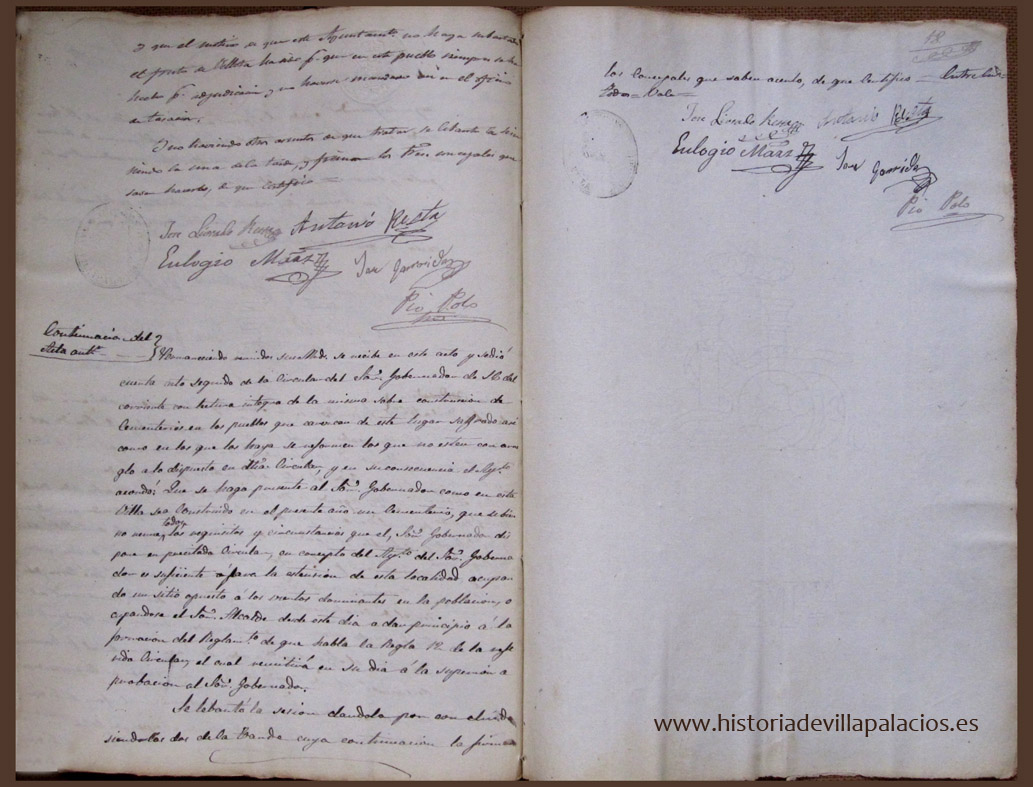 y que el motivo de que este Ayuntamto. no haya subastado
el fruto de Bellota ha sido pr. que en este pueblo siempre se ha
hecho pr. adjudicacion, y no haverse mandado en el oficio
su tasacion.
Y no haviendo otros asuntos de que tratar, se lebantó la sesion
siendo la una de la tarde, y firman los Sres. concejales que
saven hacerlo, de que certifico =
Jose Antonio Resta
Eulogio Jose Garrido
Pio Polo
Continuacion del
Acta antr.
Permaneciendo reunidos sus mrds. se recibe en este acto y se dió
cuenta acto seguido de la Circular del Sor. Gobernador de 16 del
corriente con lectura integra de la misma sobre construcion de
Cementerios en los pueblos que carezcan de este lugar Sagrado asi
como en los que los haya se reformen los que no esten con arre
glo a lo dispuesto en dha. Circular, y en su consecuencia el Ayto.
acordó: Que se haga presente al Sor. Gobernador como en esta
Villa se a Construido en el presente año un Cementerio, que si bien
no reune todos los requisitos y circunstancias que el Sor. Gobernador dis
pone en precitada Circular, en concepto del Aytto. del Sor. Goberna
dor es suficiente para la estension de esta localidad ocupan
do un sitio opuesto á los vientos dominantes en la poblacion, o
cupandose el Sor. Alcalde desde este dia a dar principio á la
formacion del Reglamto. de que habla la Regla 12 de la refe
rida Circular, el cual remitirá en su dia á la superior a
probacion del Sor. Gobernador.
Se lebantó la sesion dandola por concluida
siendo las dos de la tarde cuya continuacion la firman
18
los Concejales que saben acerlo, de que Certifico = Entre lineas =
todos = Vale =
Jose Antonio Resta
Eulogio Jose Garrido
Pio Polo
www.historiadevillapalacios.es